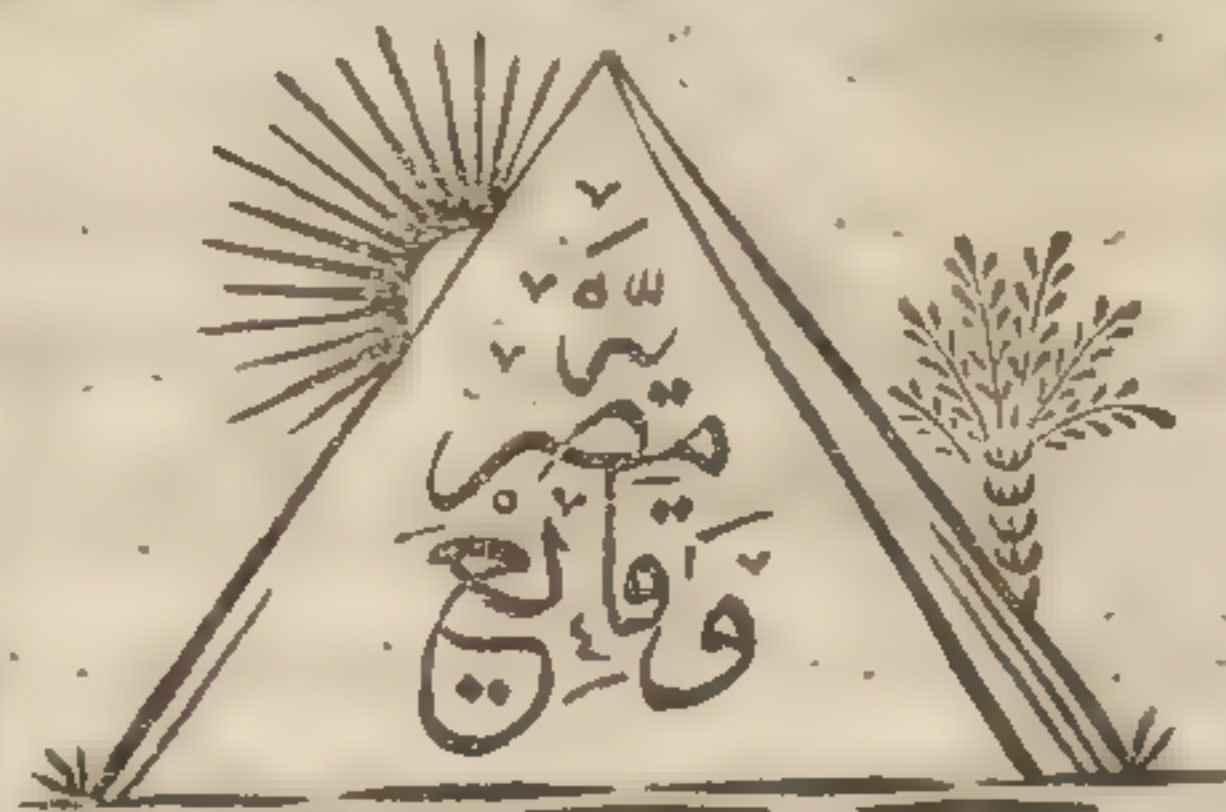 وقائع مصرية